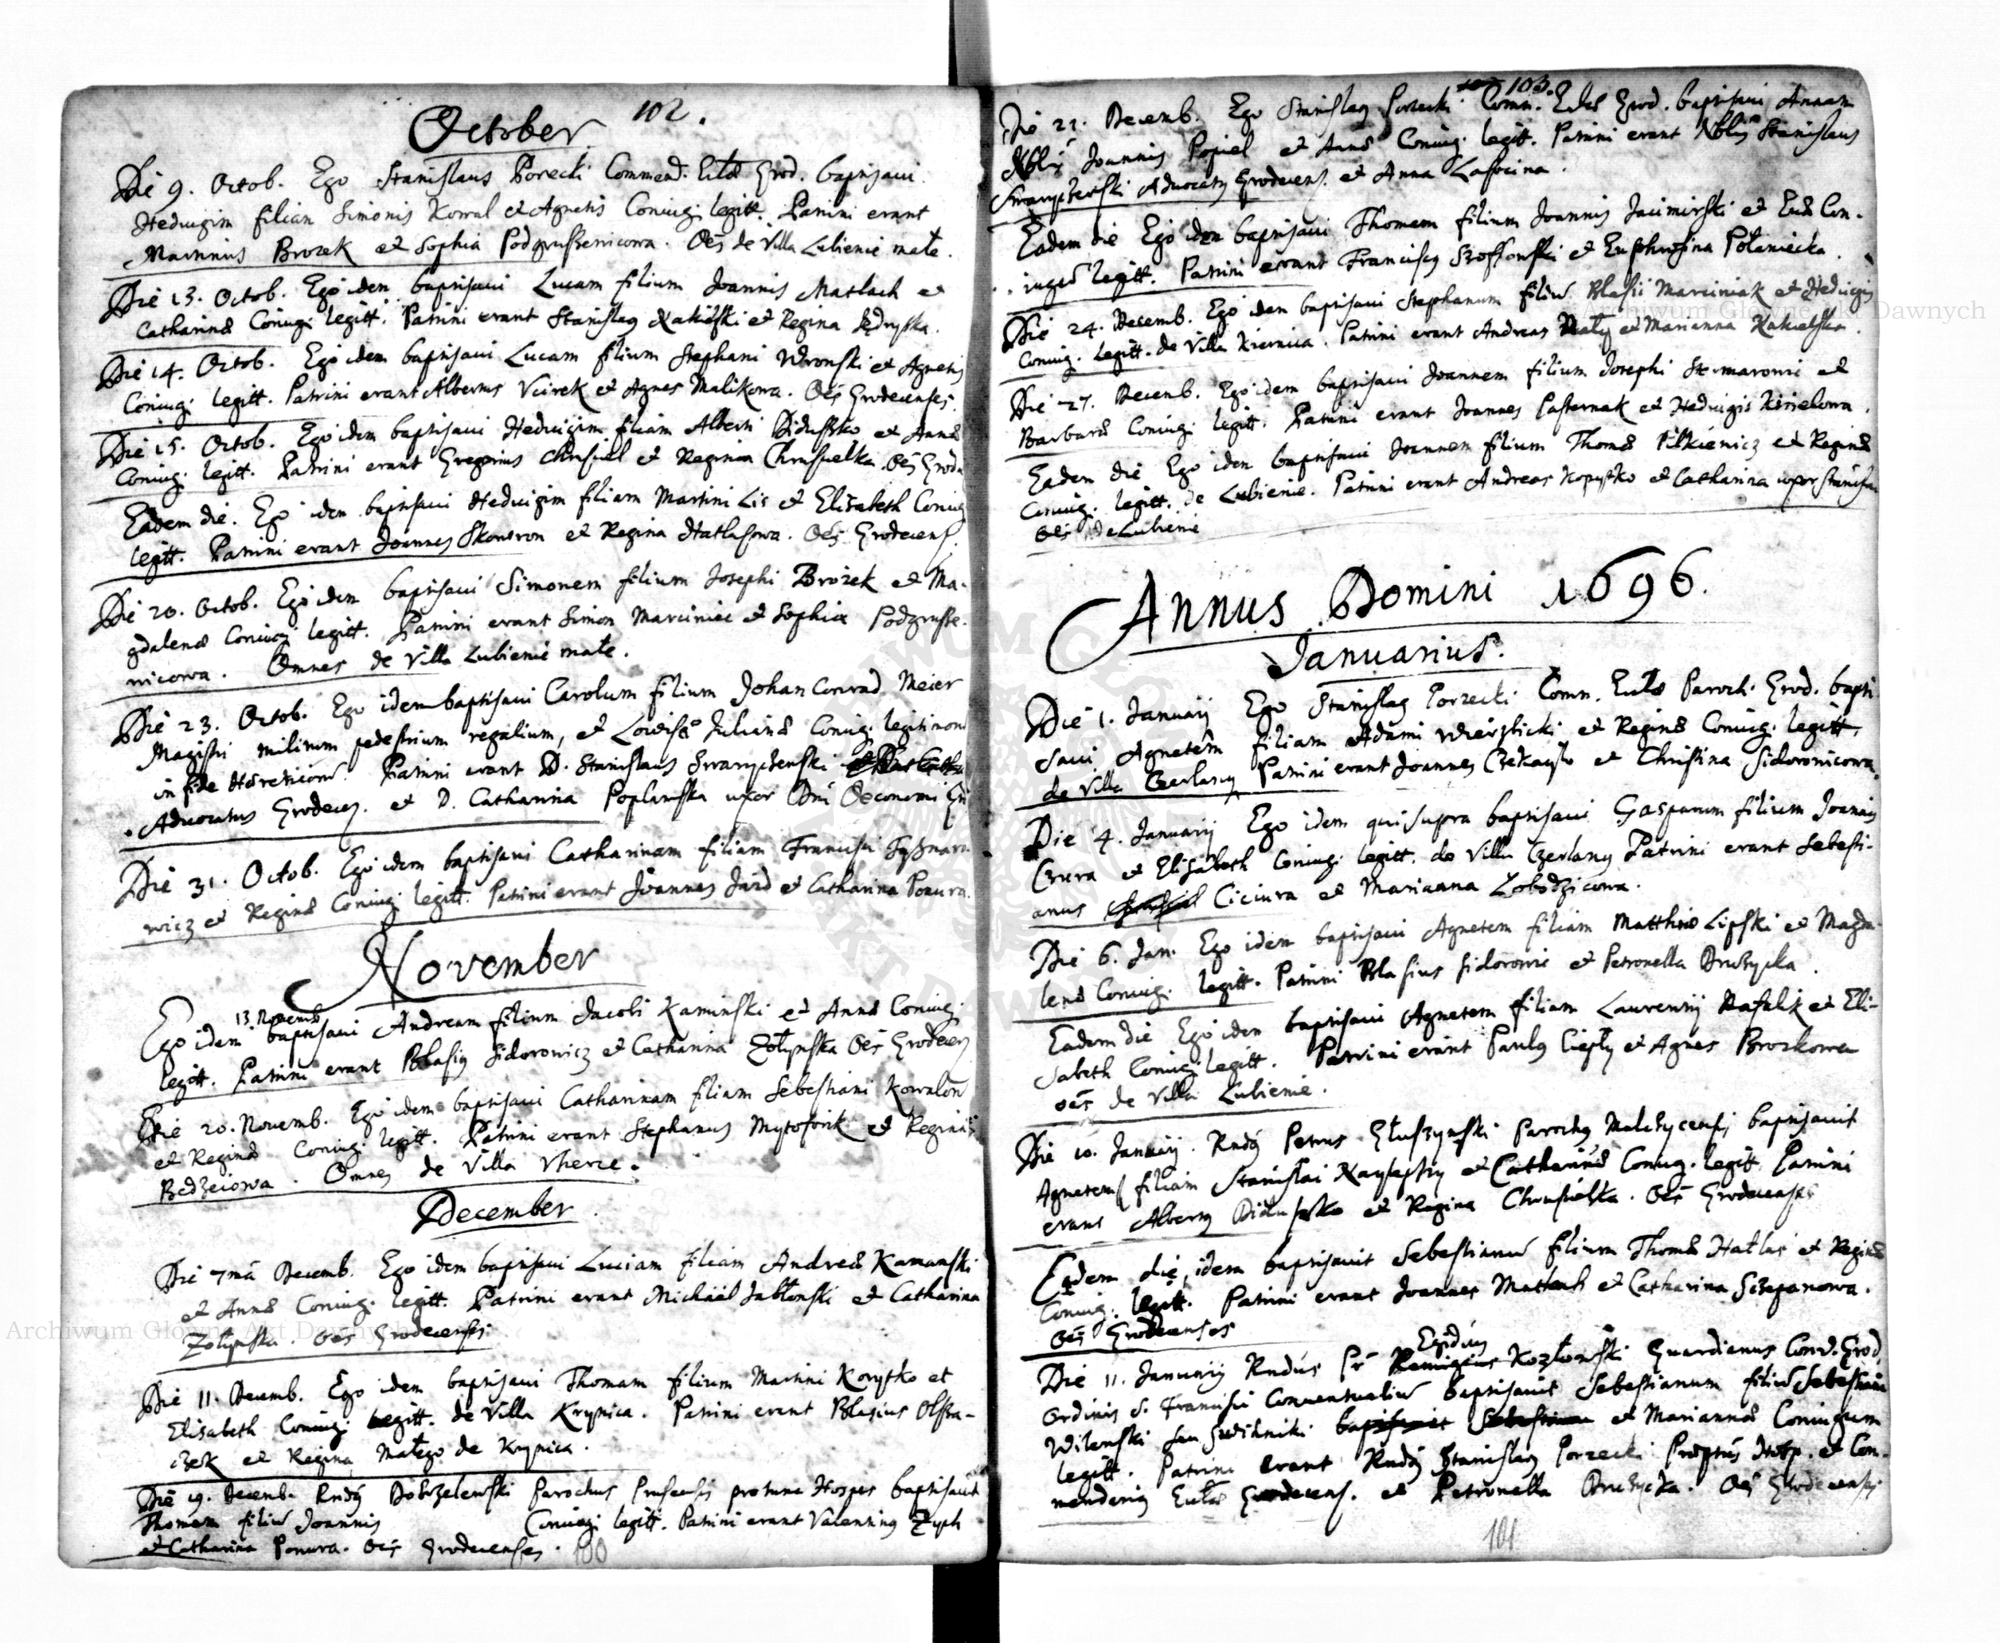 102.
October
Die 9. Octob. Ego Stanislaus Porecki Commend. Grod. baptisavi
Hedvigim filiam Simonis Koval et Agnetis Coniugi legitt. Patrini erant
Martinus Brozek et Sophia Podgruszenicowa. Oēs de Villa Lubienie małe.
Die 13. Octob. Ego idem baptisavi Lucam filium Joannis Matlach et
Catharinæ Coniugi legitt. Patrini erant Stanislaꝯ et Regina
Die 14. Octob. Ego idem baptisavi Lucam filium Stephani Wronski et Agnetis
Coniugi legitt. Patrini erant Albertus et Agnes Malikowa. Oēs Grodecenses.
Die 15. Octob. Ego idem baptisavi Hedvigim filiam Alberti Diduszko et Annæ
Coniugi legitt. Patrini erant Gregorius Chrusciel et Regina Chruscielka. Oēs Grode
Eadem die. Ego idem baptisavi Hedvigim filiam Martini Lis et Elisabeth Coniug
legitt. Patrini erant Joannes Skowron et Regina Hatlasowa. Oēs Grodecens.
Die 20. Octob. Ego idem baptisavi Simonem filium Josephi Brozek et Ma-
gdalenæ Coniugi legitt. Patrini erant Simon Marciniec et Sophia Podgrusze-
nicowa. Omnes de Villa Lubienie małe.
Die 23. Octob. Ego idem baptisavi Carolum filium Johan Conrad Meier
Magistri militum pedestrium regalium, et Lowisæ Julianæ Coniug. legitimorū
in fide Hæreticorū. Patrini erant D. Stanislaus Swarychewski
Advocatus Grodecen. et D. Catharina Poplawska uxor Dni Oeconomi
Die 31. Octob. Ego idem baptisavi Catharinam filiam Francisci
wicz et Reginæ Coniugi legitt. Patrini erant Joannes et Catharina Ponura.
November
13 Novemb
Ego idem baptisavi Andream filium Jacobi Kaminski et Annæ Coniugi
legitt. Patrini erant Blasiꝯ Sidorowicz et Catharina Zołynska Oēs Grodecen
Die 20. Novemb. Ego idem baptisavi Catharinam filiam Sebestiani Kowalow
et Reginæ Coniugi legitt. Patrini erant Stephanus et Regina
Bedzeiowa. Omnes de Villa Vherce.
December
Die 7mā Decemb. Ego idem baptisavi Luciam filiam Andreæ Kamanski
et Annæ Coniug. legitt. Patrini erant Michaël Jabłonski et Catharina
Zołynska. Oēs Grodecenses
Die 11. Decemb. Ego idem baptisavi Thomam filium Martini Korytko et
Elisabeth Coniugi legitt. de Villa Krynica. Patrini erant Blasius Olsza-
czek et Regina Małego de Krynica.
Die 19. Decemb. Rndꝯ Dobrzelewski Parochus protunc Hospes baptisavit
Thomam filiū Joannis Coniugi legitt. Patrini erant Valentinꝯ Zych
et Catharina Ponura. Oēs Grodecenses.
100
103.
Die 21. Decemb. Ego Stanislaꝯ Porzecki Comm. Eccles Grod. baptisavi Annam
Nblis Joannis Popiel et Annæ Coniug. legitt. Patrini erant Nblis Stanislaus
Swarychewski Advocatꝯ Grodecens. et Anna
Eadem die Ego idem baptisavi Thomam filium Joannis Jacimirski et Evæ Con-
iugū legitt. Patrini erant Franciscꝯ et Euphrosina Połaniecka.
Die 24. Decemb. Ego idem baptisavi Stephanum filiū Blasii Marciniak et Hedvigis
Coniug. legitt. de Villa Kiernica. Patrini erant Andreas Mały et Marianna
Die 27. Decemb. Ego idem baptisavi Joannem filium Josephi et
Barbaræ Coniugi legitt. Patrini erant Joannes Pasternak et Hedvigis Kisielowa.
Eadem die Ego idem baptisavi Joannem filium Thomæ Pilkiewicz et Reginæ
Coniug. legitt. de Lubienie. Patrini erant Andreas Kopystko et Catharina uxor
oēs de Lubienie
Annus Domini 1696.
Januarius.
Die 1. Januarij Ego Stanislaꝯ Porzecki Comm. Paroch. Grod. bapti-
savi Agnetem filiam Adami Wierzbicki et Reginæ Coniug. legitt.
de Villa Czerlany Patrini erant Joannes Czekaylo et Christina Sidorowicowa.
Die 4. Januarij Ego idem qui supra baptisavi Gasparum filium Joannis
Czura et Elisabeth Coniugi legitt. de Villa Czerlany Patrini erant Sebesti-
anus Ciciura et Marianna Łobodzicowa.
Die 6. Jan. Ego idem baptisavi Agnetem filiam Matthiæ Lipski et Magda-
lenæ Coniug. legitt. Patrini Blasius Sidorowic et Petronella Druzycka.
Eadem die Ego idem baptisavi Agnetem filiam Laurentij Rafalik et Eli-
sabeth Coniugi legitt. Patrini erant Paulꝯ Ciepły et Agnes Brozkowa
oēs de Villa Lubienie.
Die 10. Januarij. Rndꝯ Petrus Głuszynski Parochꝯ Malczycensis baptisavit
Agnetem filiam Stanislai et Catharinæ Coniug. legitt. Patrini
erant Albertꝯ Diduszko et Regina Chruscielka. Oēs Grodecenses
Eadem die, idem baptisavit Sebestianū filium Thomæ Hatlas et Reginæ
Coniug. legitt. Patrini erant Joannes Matlach et Catharina Sczepanowa.
Oēs Grodecenses
Egidius
Die 11. Januarij Rndus Pr Remigius Kozłowski Guardianus Conv. Grod.
Ordinis S. Francisci Conventualiū baptisavit Sebestianum filiū Sebestiani
Wilenski seu baptisavit Sebestianum et Mariannæ Coniugum
legitt. Patrini erant Rndꝯ Stanislaꝯ Porzecki Præptus Hosp. et Com-
mendariꝯ Grodecens. et Petronella Druzycka. Oēs Grodecenses
101
Archiwum Główne Akt Dawnych
Archiwum Główne Akt Dawnych